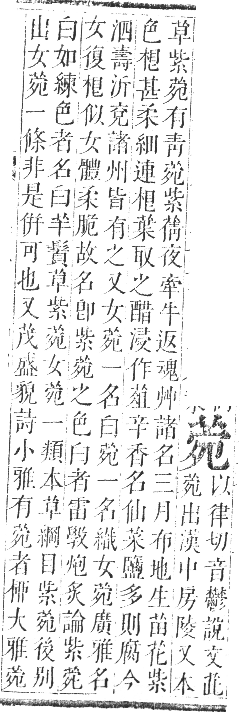 菀
以律切音鬱說文茈
菀出漢中房陵又本
草紫菀有靑菀紫蒨夜牽牛返魂艸諸名三月布地生苗花紫
色根甚柔細連根葉取之醋浸作葅辛香名仙菜鹽多則腐今
洒壽沂兗諸州皆有之又女菀一名白菀一名織女菀廣雅名
女復根似女體柔脆故名卽紫菀之色白者雷斅炮炙論紫菀
白如練色者名曰羊鬚草紫菀女菀一類本草綱目紫菀後別
出女菀一條非是倂可也又茂盛貌詩小雅有菀者桺大雅菀